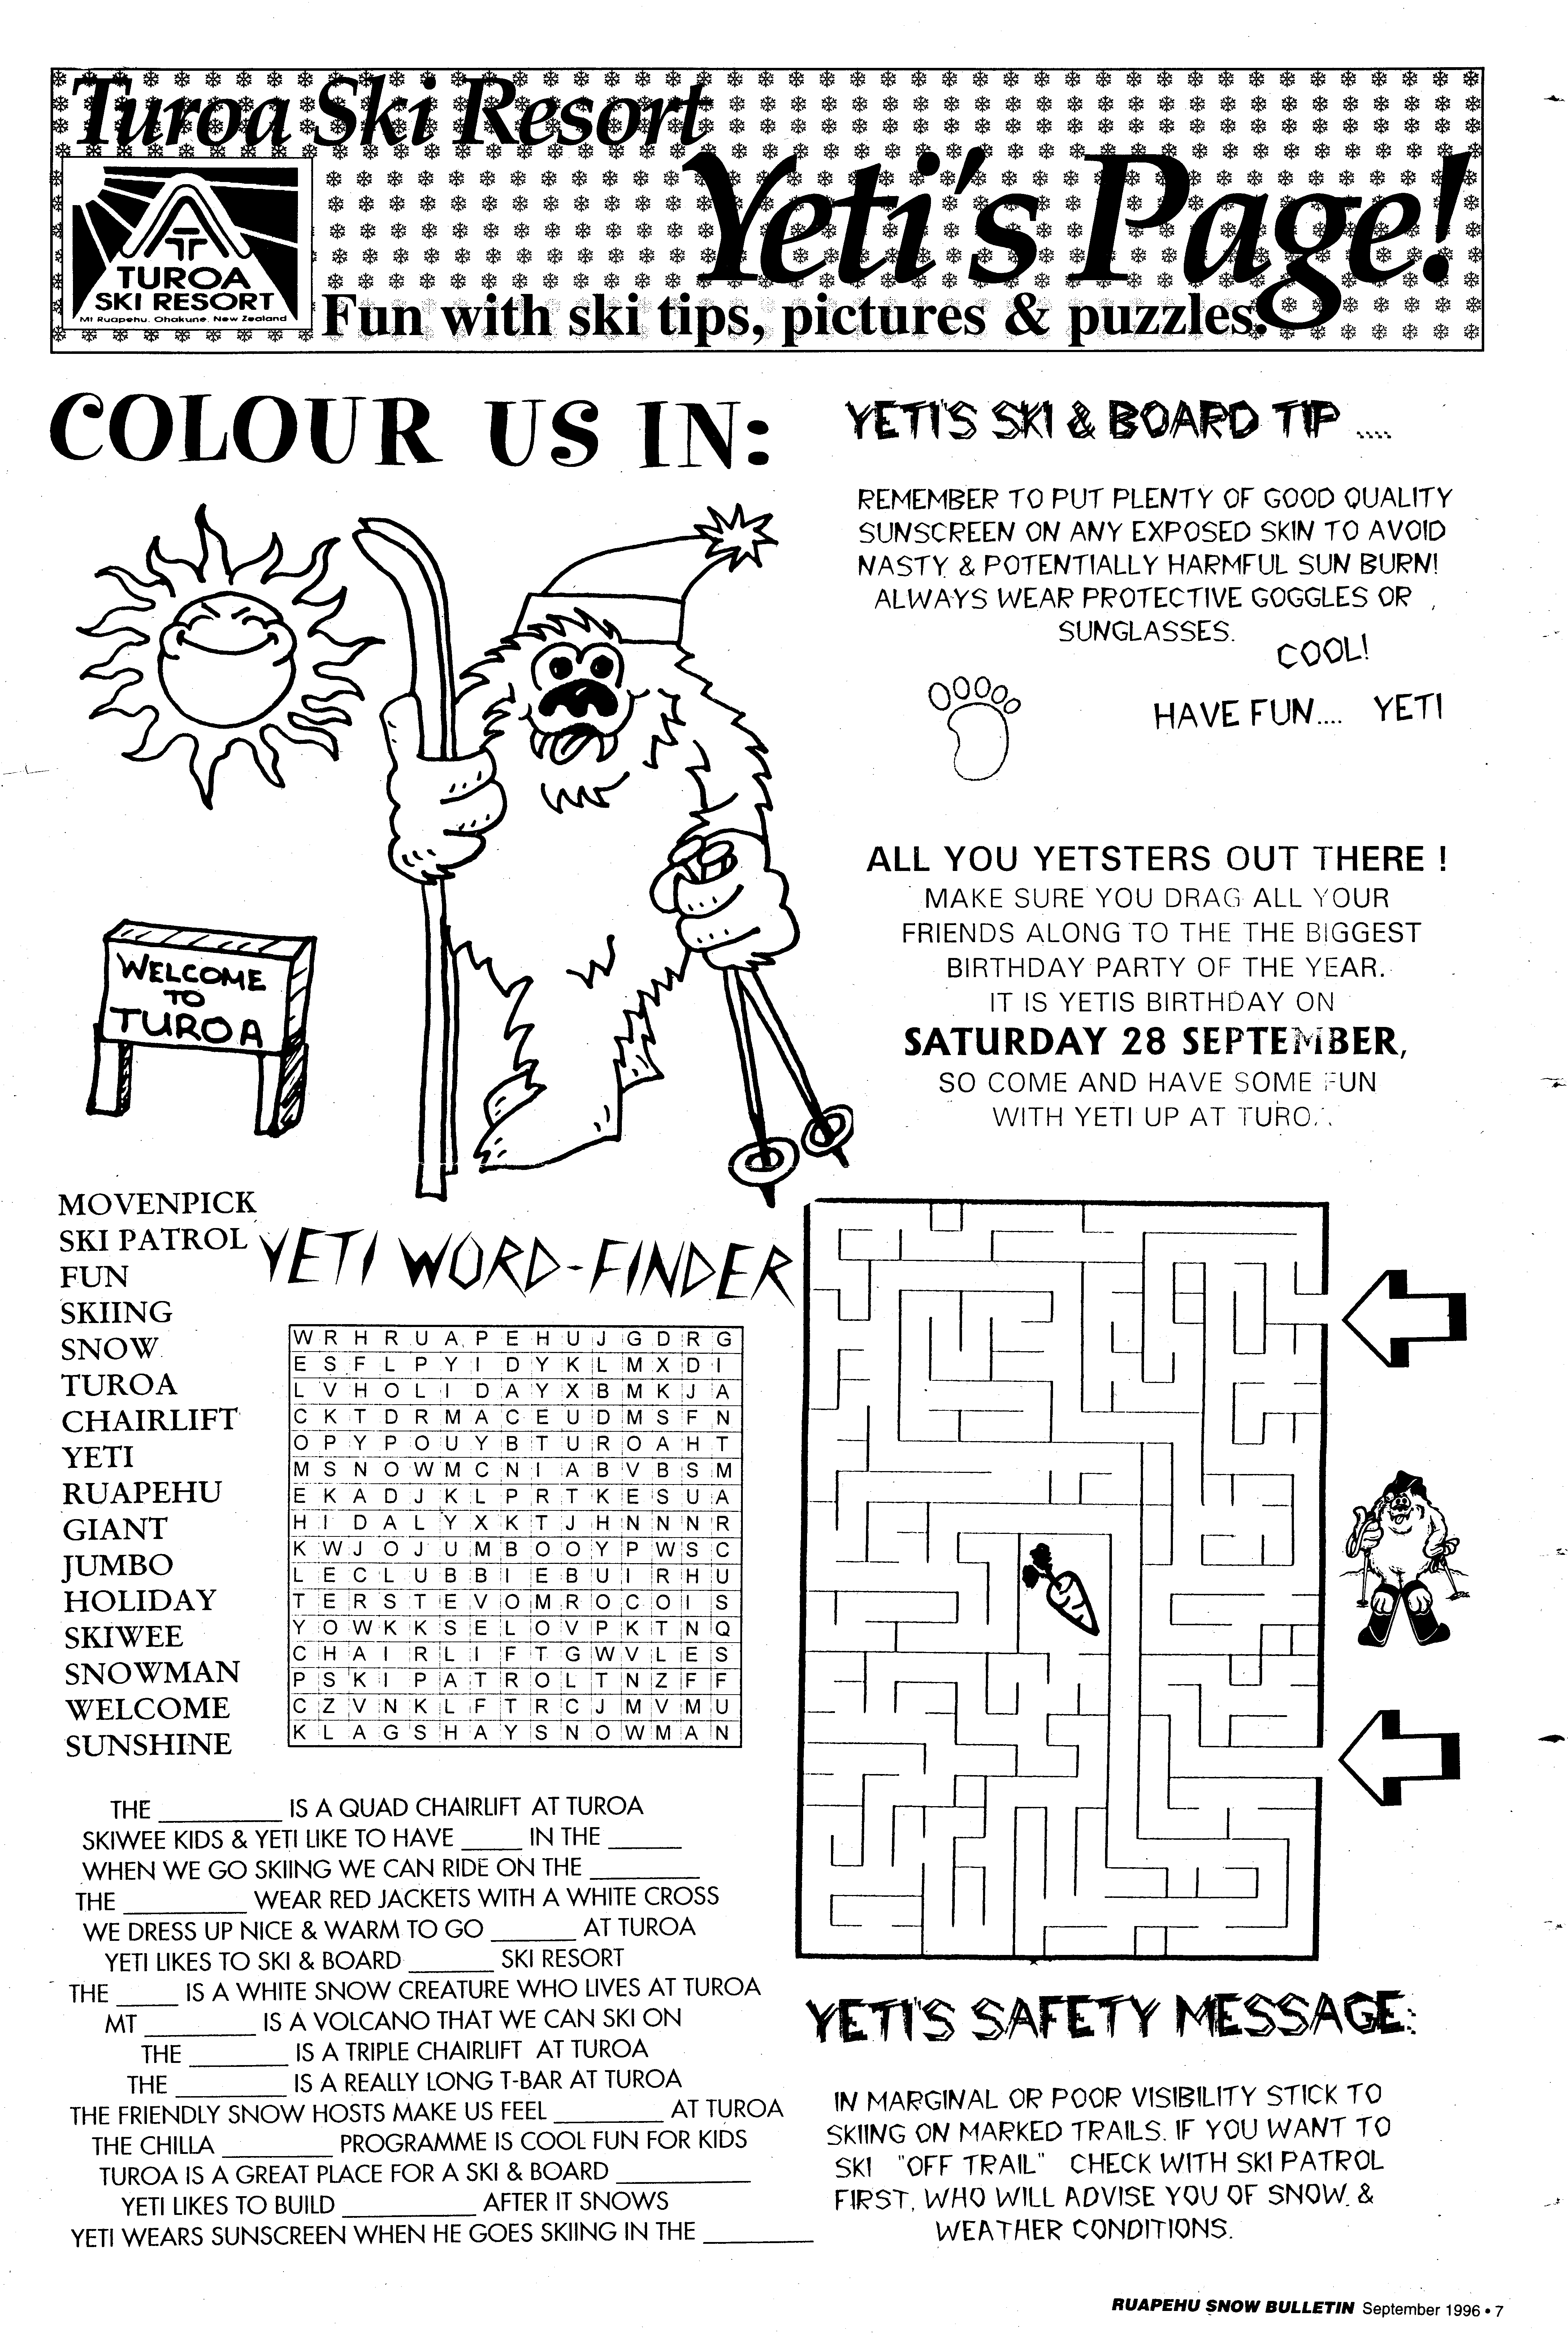 Turoa Ski Resort
Yeti's Page!
TUROA
SKI RESORT
Mt Ruapehu. Ohakune. New Zealand
Fun with ski tips, pictures & puzzles.
COLOUR US IN:
WELCOME
TO
TUROA
YETI'S SKI & BOARD TIP ....
REMEMBER TO PUT PLENTY OF GOOD QUALITY
SUNSCREEN ON ANY EXPOSED SKIN TO AVOID
NASTY & POTENTIALLY HARMFUL SUN BURN!
ALWAYS WEAR PROTECTIVE GOGGLES OR
SUNGLASSES.
COOL!
HAVE FUN.... YETI
ALL YOU YETSTERS OUT THERE !
MAKE SURE YOU DRAG ALL YOUR
FRIENDS ALONG TO THE THE BIGGEST
BIRTHDAY PARTY OF THE YEAR.
IT IS YETIS BIRTHDAY ON
SATURDAY 28 SEPTEMBER,
SO COME AND HAVE SOME FUN
WITH YETI UP AT
MOVENPICK
SKI PATROL
FUN
SKIING
SNOW
TUROA
CHAIRLIFT
YETI
RUAPEHU
GIANT
JUMBO
HOLIDAY
SKIWEE
SNOWMAN
WELCOME
SUNSHINE
YETI WORD-FINDER
W R H R U A P E H U J G D R G
E S F L P Y I D Y K L M X D I
L V H O L I D A Y X B M K J A
C K T D R M A C E U D M S F N
O P Y P O U Y B T U R O A H T
M S N O W M C N I A B V B S M
E K A D J K L P R T K E S U A
H I D A L Y X K T J H N N N R
K W J O J U M B O O Y P W S C
L E C L U B B I E B U I R H U
T E R S T E V O M R O C O I S
Y O W K K S E L O V P K T N Q
C H A I R L I F T G W V L E S
P S K I P A T R O L T N Z F F
C Z V N K L F T R C J M V M U
K L A G S H A Y S N O W M A N
THE __________ IS A QUAD CHAIRLIFT AT TUROA
SKIWEE KIDS & YETI LIKE TO HAVE _____ IN THE ______
WHEN WE GO SKIING WE CAN RIDE ON THE _________
THE __________ WEAR RED JACKETS WITH A WHITE CROSS
WE DRESS UP NICE & WARM TO GO _______ AT TUROA
YETI LIKES TO SKI & BOARD _______ SKI RESORT
THE _____ IS A WHITE SNOW CREATURE WHO LIVES AT TUROA
MT _________ IS A VOLCANO THAT WE CAN SKI ON
THE ________ IS A TRIPLE CHAIRLIFT AT TUROA
THE _________ IS A REALLY LONG T-BAR AT TUROA
THE FRIENDLY SNOW HOSTS MAKE US FEEL _________ AT TUROA
THE CHILLA _________ PROGRAMME IS COOL FUN FOR KIDS
TUROA IS A GREAT PLACE FOR A SKI & BOARD ___________
YETI LIKES TO BUILD ___________ AFTER IT SNOWS
YETI WEARS SUNSCREEN WHEN HE GOES SKIING IN THE _________
YETI'S SAFETY MESSAGE:
IN MARGINAL OR POOR VISIBILITY STICK TO
SKIING ON MARKED TRAILS. IF YOU WANT TO
SKI "OFF TRAIL" CHECK WITH SKI PATROL
FIRST, WHO WILL ADVISE YOU OF SNOW &
WEATHER CONDITIONS.
RUAPEHU SNOW BULLETIN September 1996 • 7